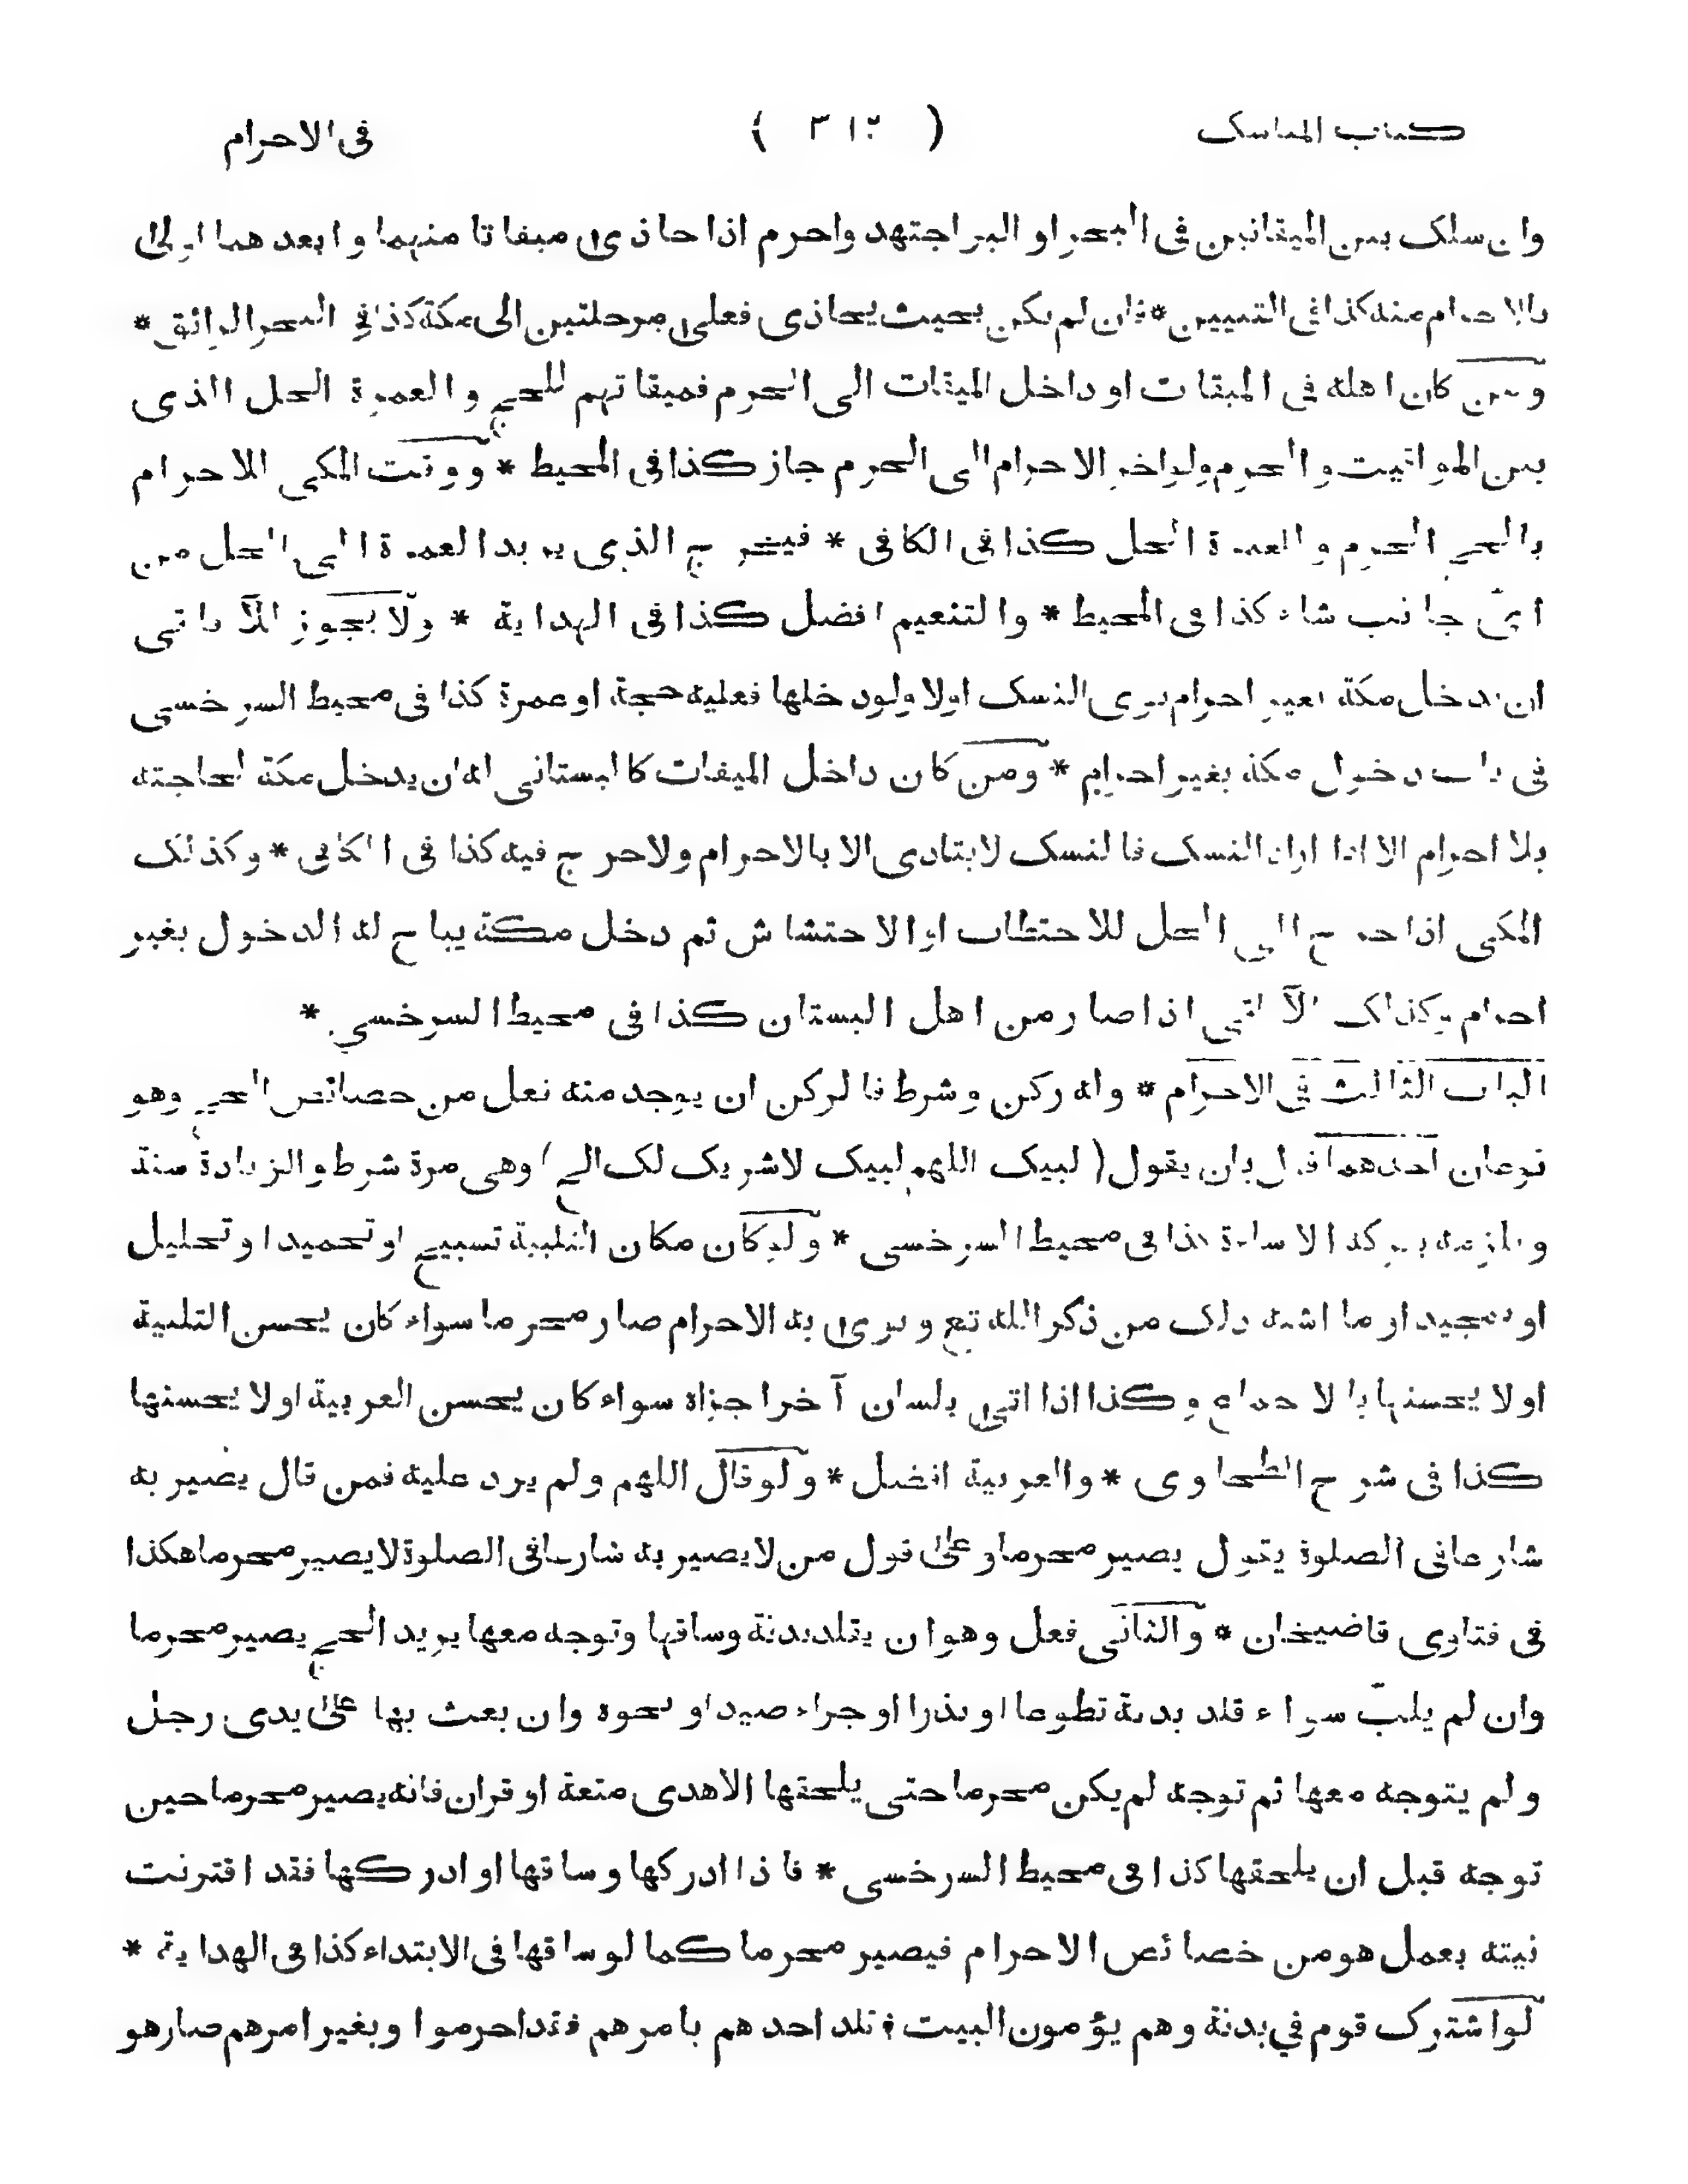 كتاب المناسك ( ٣١٢ ) فى الاحرام
وان سلك بين الميقاتين فى البحر او البر اجتهد واحرم اذا حاذى ميقاتا منهما وابعدهما اولى
بالاحرام منه كذا فى التبيين * فان لم يكن بحيث يحاذى فعلى مرحلتين الى مكة كذا فى البحر الرائق *
ومن كان اهله فى الميقات او داخل الميقات الى الحرم فميقاتهم للحج والعمرة الحل الذى
بين المواقيت والحرم ولو اخر الاحرام الى الحرم جاز كذا فى المحيط * ووقت المكى للاحرام
بالحج الحرم وللعمرة الحل كذا فى الكافى * فيخرج الذى يريد العمرة الى الحل من
اىّ جانب شاء كذا فى المحيط * والتنعيم افضل كذا فى الهداية * ولا يجوز للآفاقى
ان يدخل مكة بغير احرام نوى النسك اولا ولو دخلها فعليه حجة او عمرة كذا فى محيط السرخسى
فى باب دخول مكة بغير احرام * ومن كان داخل الميقات كالبستانى له ان يدخل مكة لحاجته
بلا احرام الا اذا اراد النسك فالنسك لا يتادى الا بالاحرام ولا حرج فيه كذا فى الكافى * وكذلك
المكى اذا خرج الى الحل للاحتطاب او الاحتشاش ثم دخل مكة يباح له الدخول بغير
احرام وكذلك الآفاقى اذا صار من اهل البستان كذا فى محيط السرخسي *
الباب الثالث فى الاحرام * وله ركن وشرط فالركن ان يوجد منه فعل من خصائص الحج وهو
نوعان احدهما قول بان يقول ( لبيك اللهم لبيك لا شريك لك الخ ) وهى مرة شرط والزيادة سنة
ويلزمه بتركه الاساءة هكذا فى محيط السرخسى * ولو كان مكان التلبية تسبيح او تحميد او تحليل
او تمجيد او ما اشبه ذلك من ذكر الله تع ونوى به الاحرام صار محرما سواء كان يحسن التلبية
او لا يحسنها بالاجماع وكذا اذا اتى بلسان آخر اجزاه سواء كان يحسن العربية او لا يحسنها
كذا فى شرح الطحاوى * والعربية افضل * ولو قال اللهم ولم يرد عليه فمن قال يصير به
شارعا فى الصلوة يقول يصير محرما وعلى قول من لا يصير به شارعا فى الصلوة لا يصير محرما هكذا
فى فتاوى قاضيخان * والثانى فعل وهو ان يقلد بدنة وساقها وتوجه معها يريد الحج يصير محرما
وان لم يلبّ سواء قلد بدنة تطوعا او نذرا او جزاء صيد او نحوه وان بعث بها على يدى رجل
ولم يتوجه معها ثم توجه لم يكن محرما حتى يلحقها الا هدى متعة او قران فانه يصير محرما حين
توجه قبل ان يلحقها كذا فى محيط السرخسى * فاذا ادركها وساقها او ادركها فقد اقترنت
نيته بعمل هو من خصائص الاحرام فيصير محرما كما لو ساقها فى الابتداء كذا فى الهداية *
لو اشترك قوم في بدنة وهم يؤمون البيت فقلد احدهم بامرهم فقد احرموا وبغير امرهم صار هو